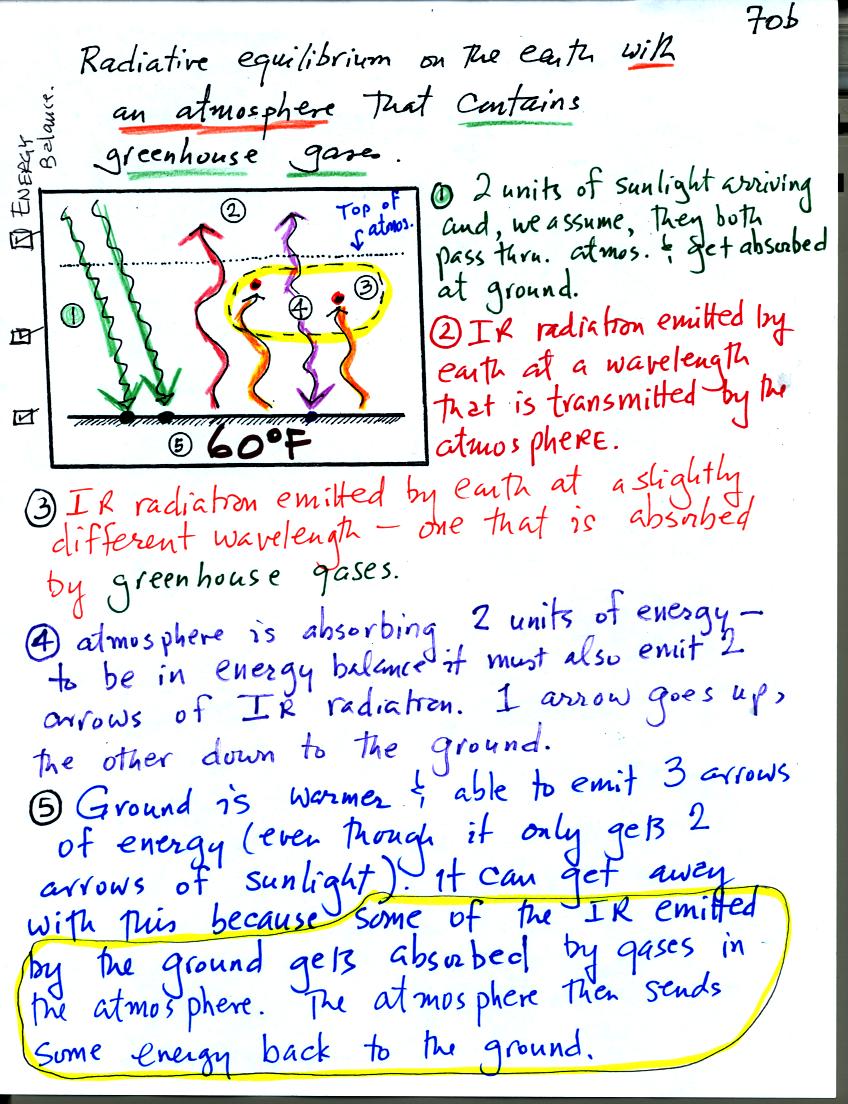 70b
Radiative equilibrium on the earth with
an atmosphere that contains
greenhouse gases.
ENERGY
Balance.
②
Top of
atmos.
①
③
④
⑤ 60°F
① 2 units of sunlight arriving
and, we assume, they both
pass thru. atmos. & get absorbed
at ground.
② IR radiation emitted by
earth at a wavelength
that is transmitted by the
atmospHERE.
③ IR radiation emitted by earth at a slightly
different wavelength – one that is absorbed
by greenhouse gases.
④ atmosphere is absorbing 2 units of energy –
to be in energy balance it must also emit 2
arrows of IR radiation. 1 arrow goes up,
the other down to the ground.
⑤ Ground is warmer & able to emit 3 arrows
of energy (even though it only gets 2
arrows of sunlight). It can get away
with this because some of the IR emitted
by the ground gets absorbed by gases in
the atmosphere. The atmosphere then sends
some energy back to the ground.